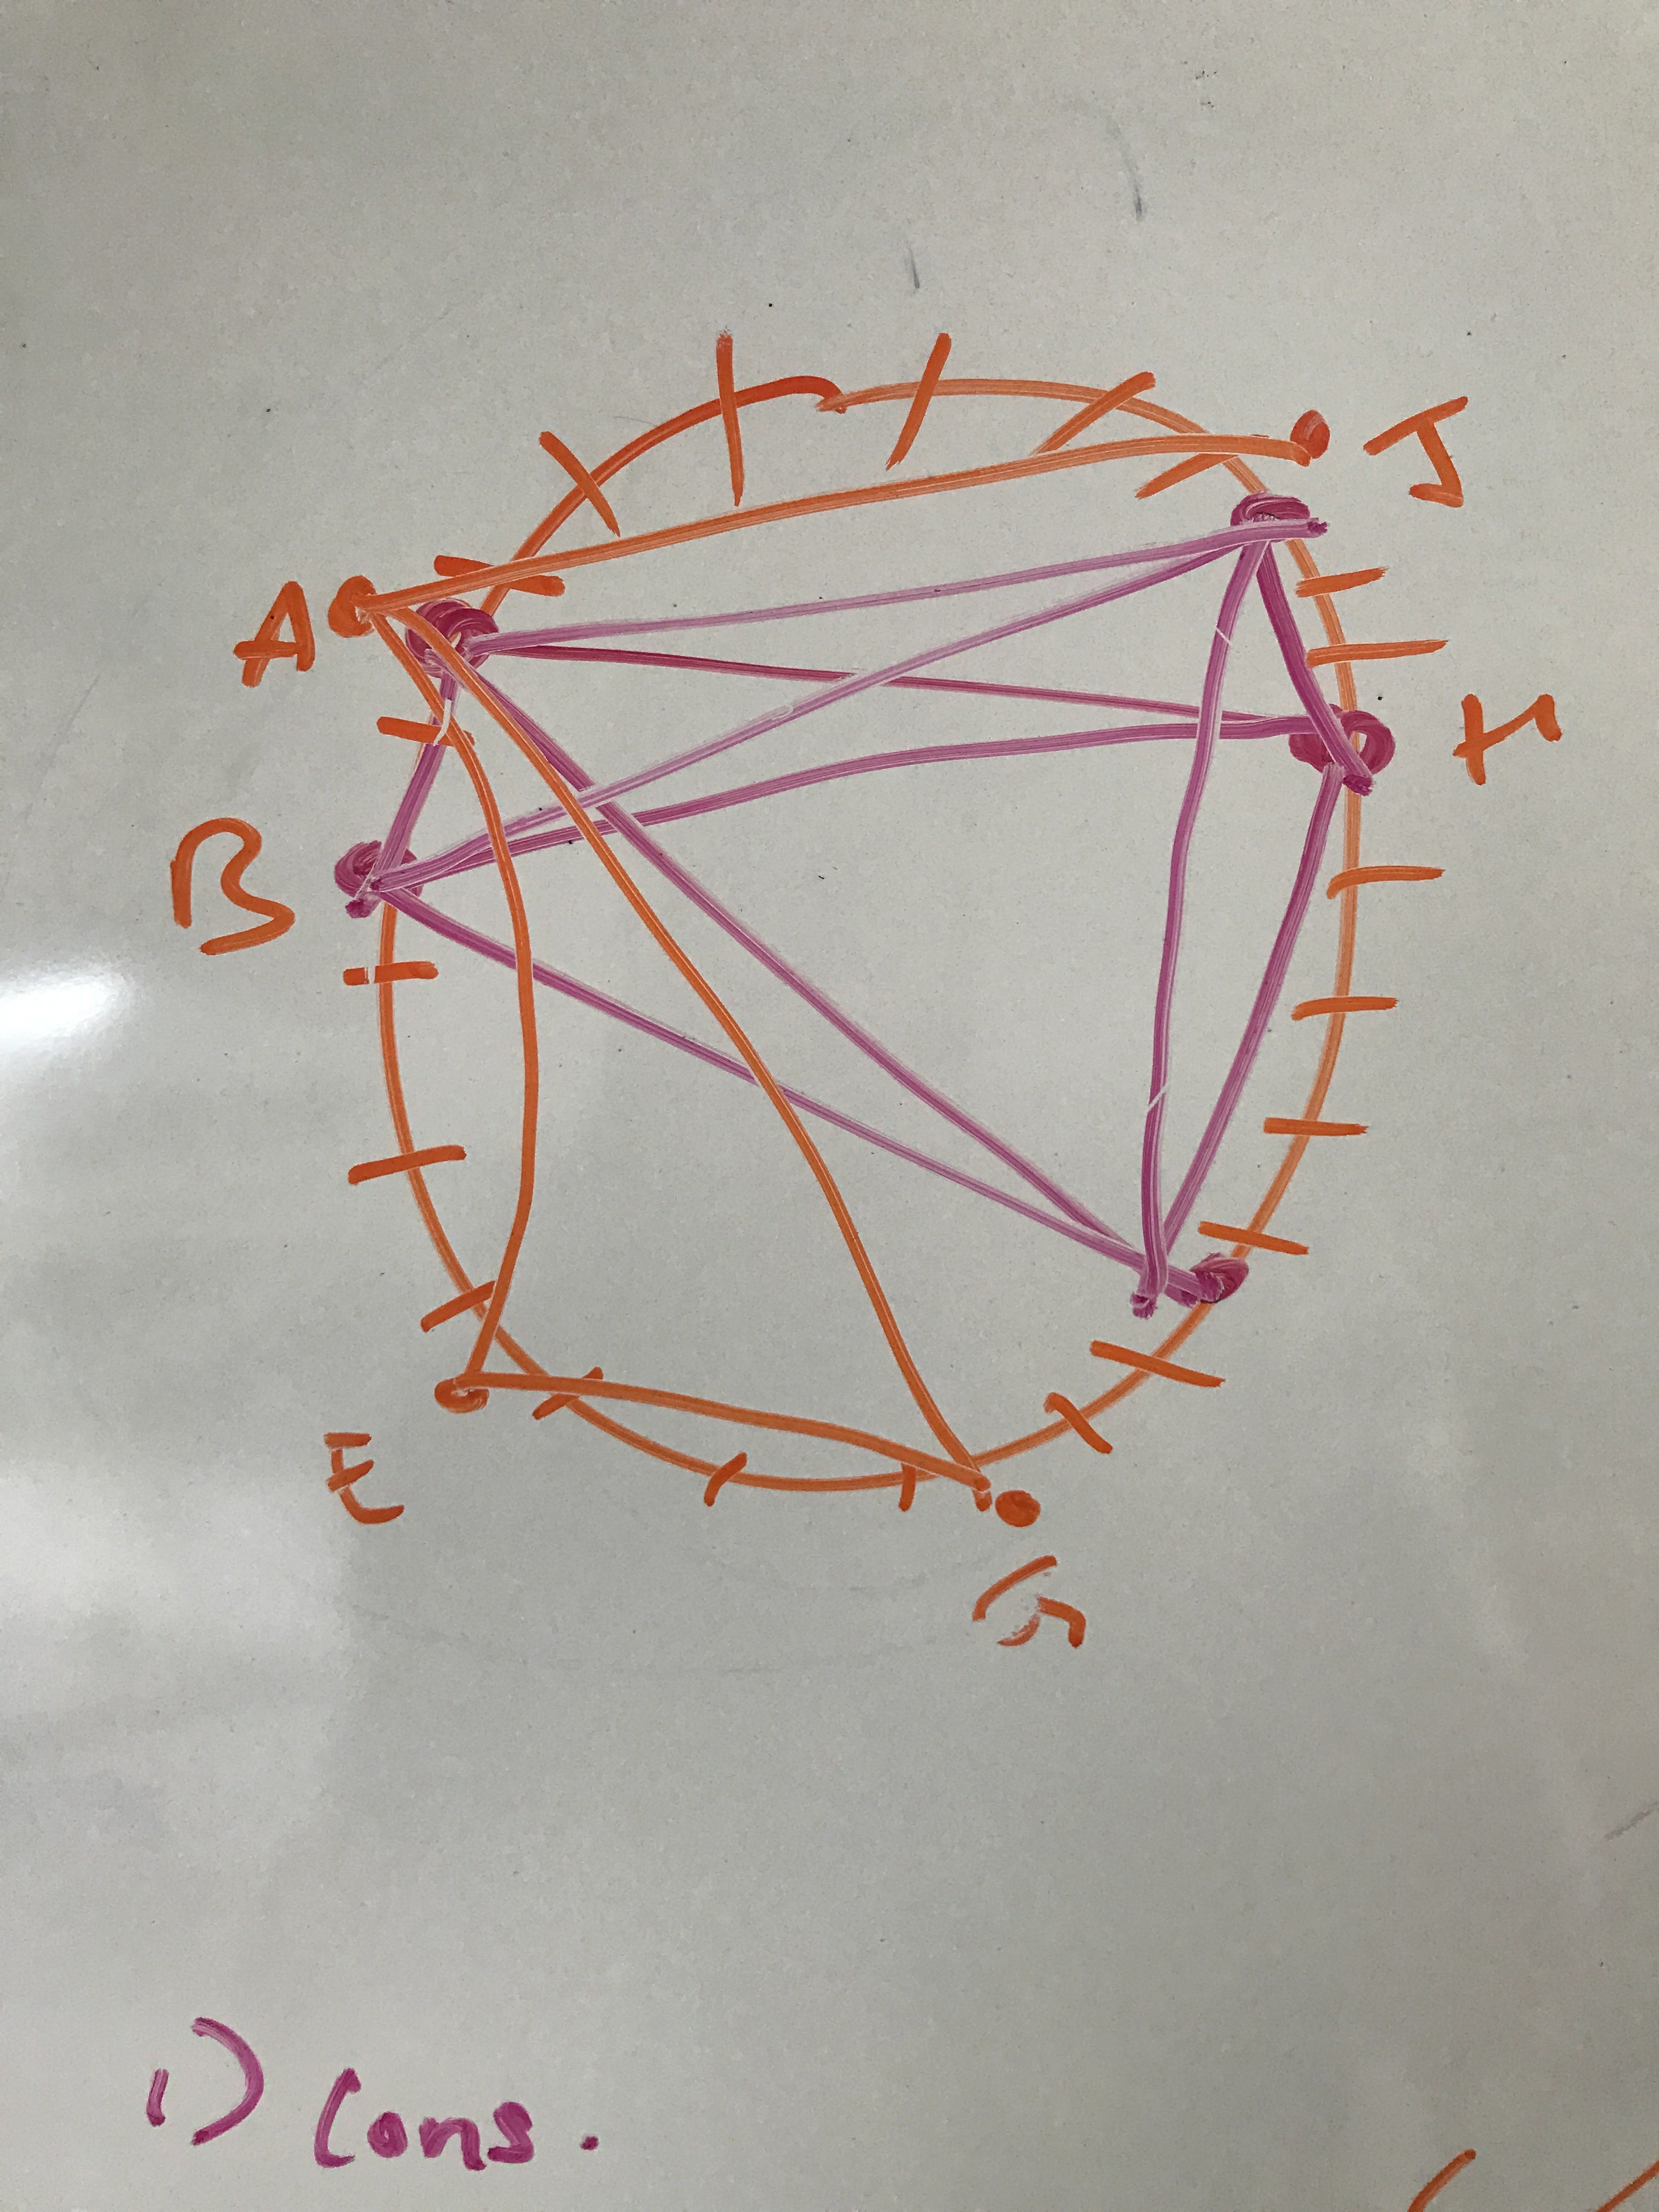 J
A
H
B
E
G
1) Cons.